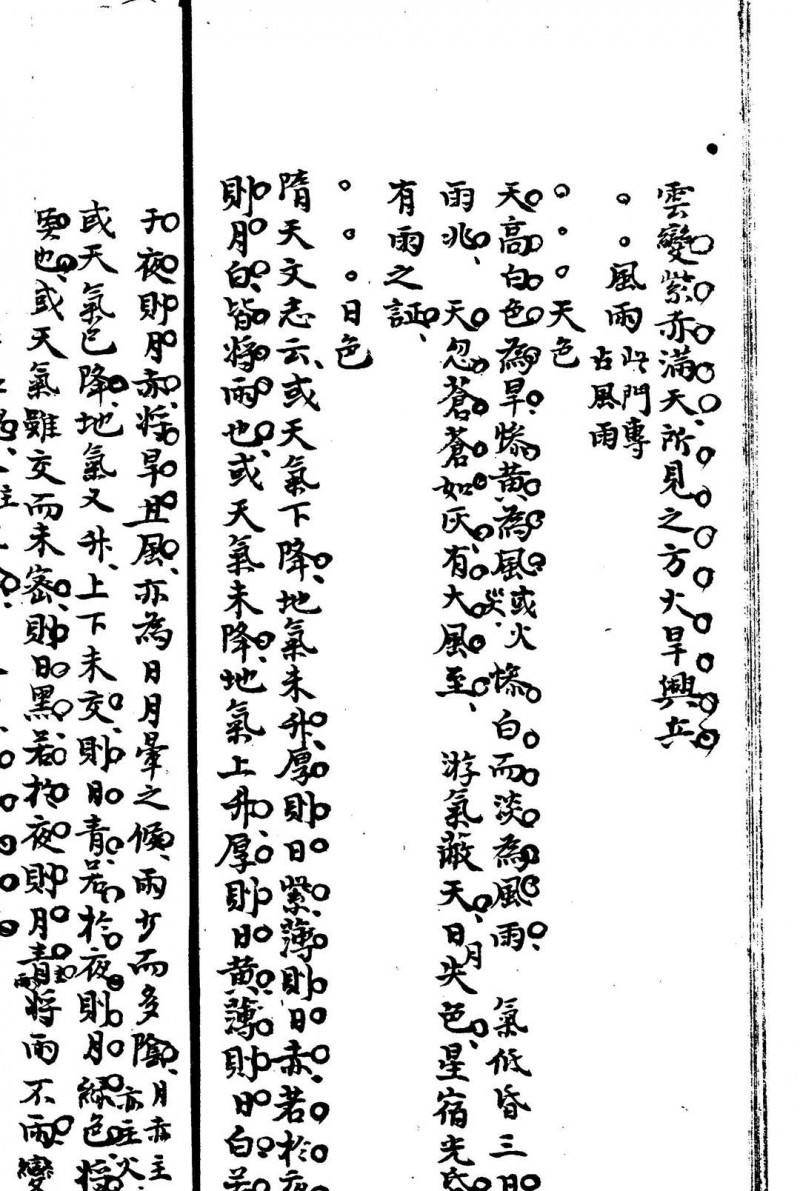 雲變紫赤滿天所見之方大旱興兵
風雨 此門專占風雨
天色
天高白色為旱慘黃為風或火災慘白而淡為風雨 氣低昏三日
雨兆 天忽蒼蒼如灰有大風至 游氣蔽天日月失色星宿光
有雨之証
日色
隋天文志云或天氣下降地氣未升厚則日紫薄則日赤若於夜
則月白皆將雨也或天氣未降地氣上升厚則日黃薄則日白若
于夜則月赤將旱且風亦為日月暈之候雨少而多陰 月赤主 亦主火
或天氣已降地氣又升上下未交則日青若於夜則月綠色將
也或天氣雖交而未密則日黑若於夜則月青將雨不雨變